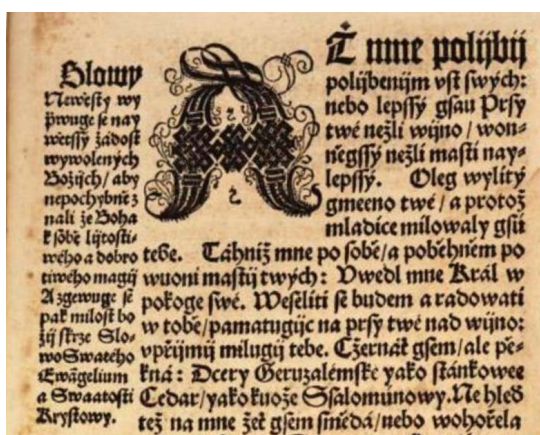 Slowy
Newěsty wy
přwuge se nay
wětssý žádost
wywolených
Božijch / aby
nepochybně z
nali že Boha
k sobě lijtosti-
wého a dobro
tiwého magij
A zgewuge se
pak milost bo
žij skrze Slo-
wo Swatého
Ewãgelium
a Swaatosti
Krystowy.
AŤ mne polijbij
polijbenijm vst swých:
nebo lepssý gsau Prsy
twé nežli wijno / won-
něgssý nežli masti nay-
lepssý. Oleg wylitý
gmeeno twé / a protož
mladice milowaly gsú
tebe. Táhniž mne po sobě / a poběhnem po
wuoni mastij twých: Vwedl mne Král w
pokoge swé. Weseliti se budem a radowati
w tobě / pamatugijc na prsy twé nad wijno:
vpřijmij milugij tebe. Cžernát gsem / ale pě-
kná: Dcery Geruzalémské yako stánkowee
Cedar / yako kuože Ssalomúnowy. Ne hleď
též na mne žeť gsem snědá / nebo wohořela